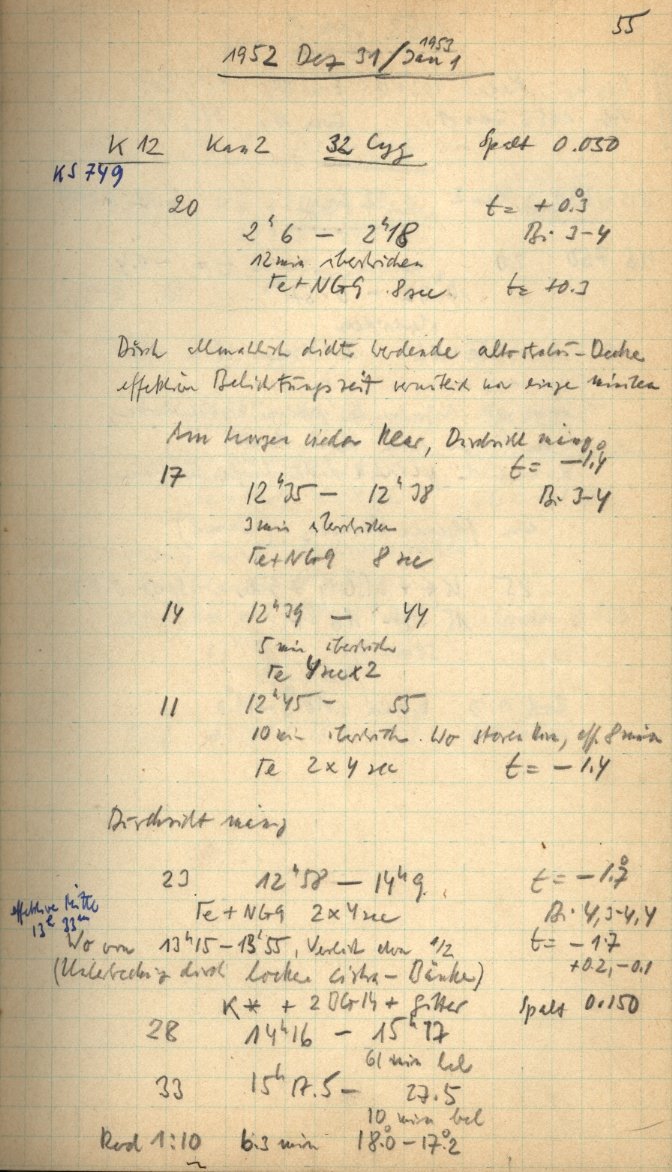 55
1952 Dez 31/Jan 1 1953
K 12 Kam 2 32 Cyg Spalt 0.050
KS 749
20 t = +0.3°
2ʰ6 – 2ʰ18 Bi 3-4
12 min überstrichen
Te + NG9 8 sec t = +0.3
Durch allmählich dichter werdende altostratus-Decke
effektive Belichtungszeit vermutlich nur einige minuten
Am morgen wieder klar, Durchsicht mässig
17 t = -1.4°
12ʰ35 – 12ʰ38 Bi 3-4
3 min überstrichen
Te + NG9 8 sec
14 12ʰ39 – 44
5 min überstrichen
Te 4 sec x 2
11 12ʰ45 – 55
10 min überstrichen. Wo stören, eff. 8 min
Te 2 x 4 sec t = -1.4
Durchsicht mässig
23 12ʰ58 – 14ʰ9 t = -1.7°
effektive Mitte
13ʰ 33ᵐ
Te + NG9 2 x 4 sec Bi 4, 3-4, 4
Wo von 13ʰ15 – 13ʰ55, Verlust etwa 1/2 t = -1.7
+0.2, -0.1
(Unterbrechung durch lockere cirrus-Bänke)
K* + 2 BG14 + gitter Spalt 0.150
28 14ʰ16 – 15ʰ17
61 min bel
33 15ʰ17.5 – 27.5
10 min bel
Rod 1:10 6.3 min 18.0° – 17.2°